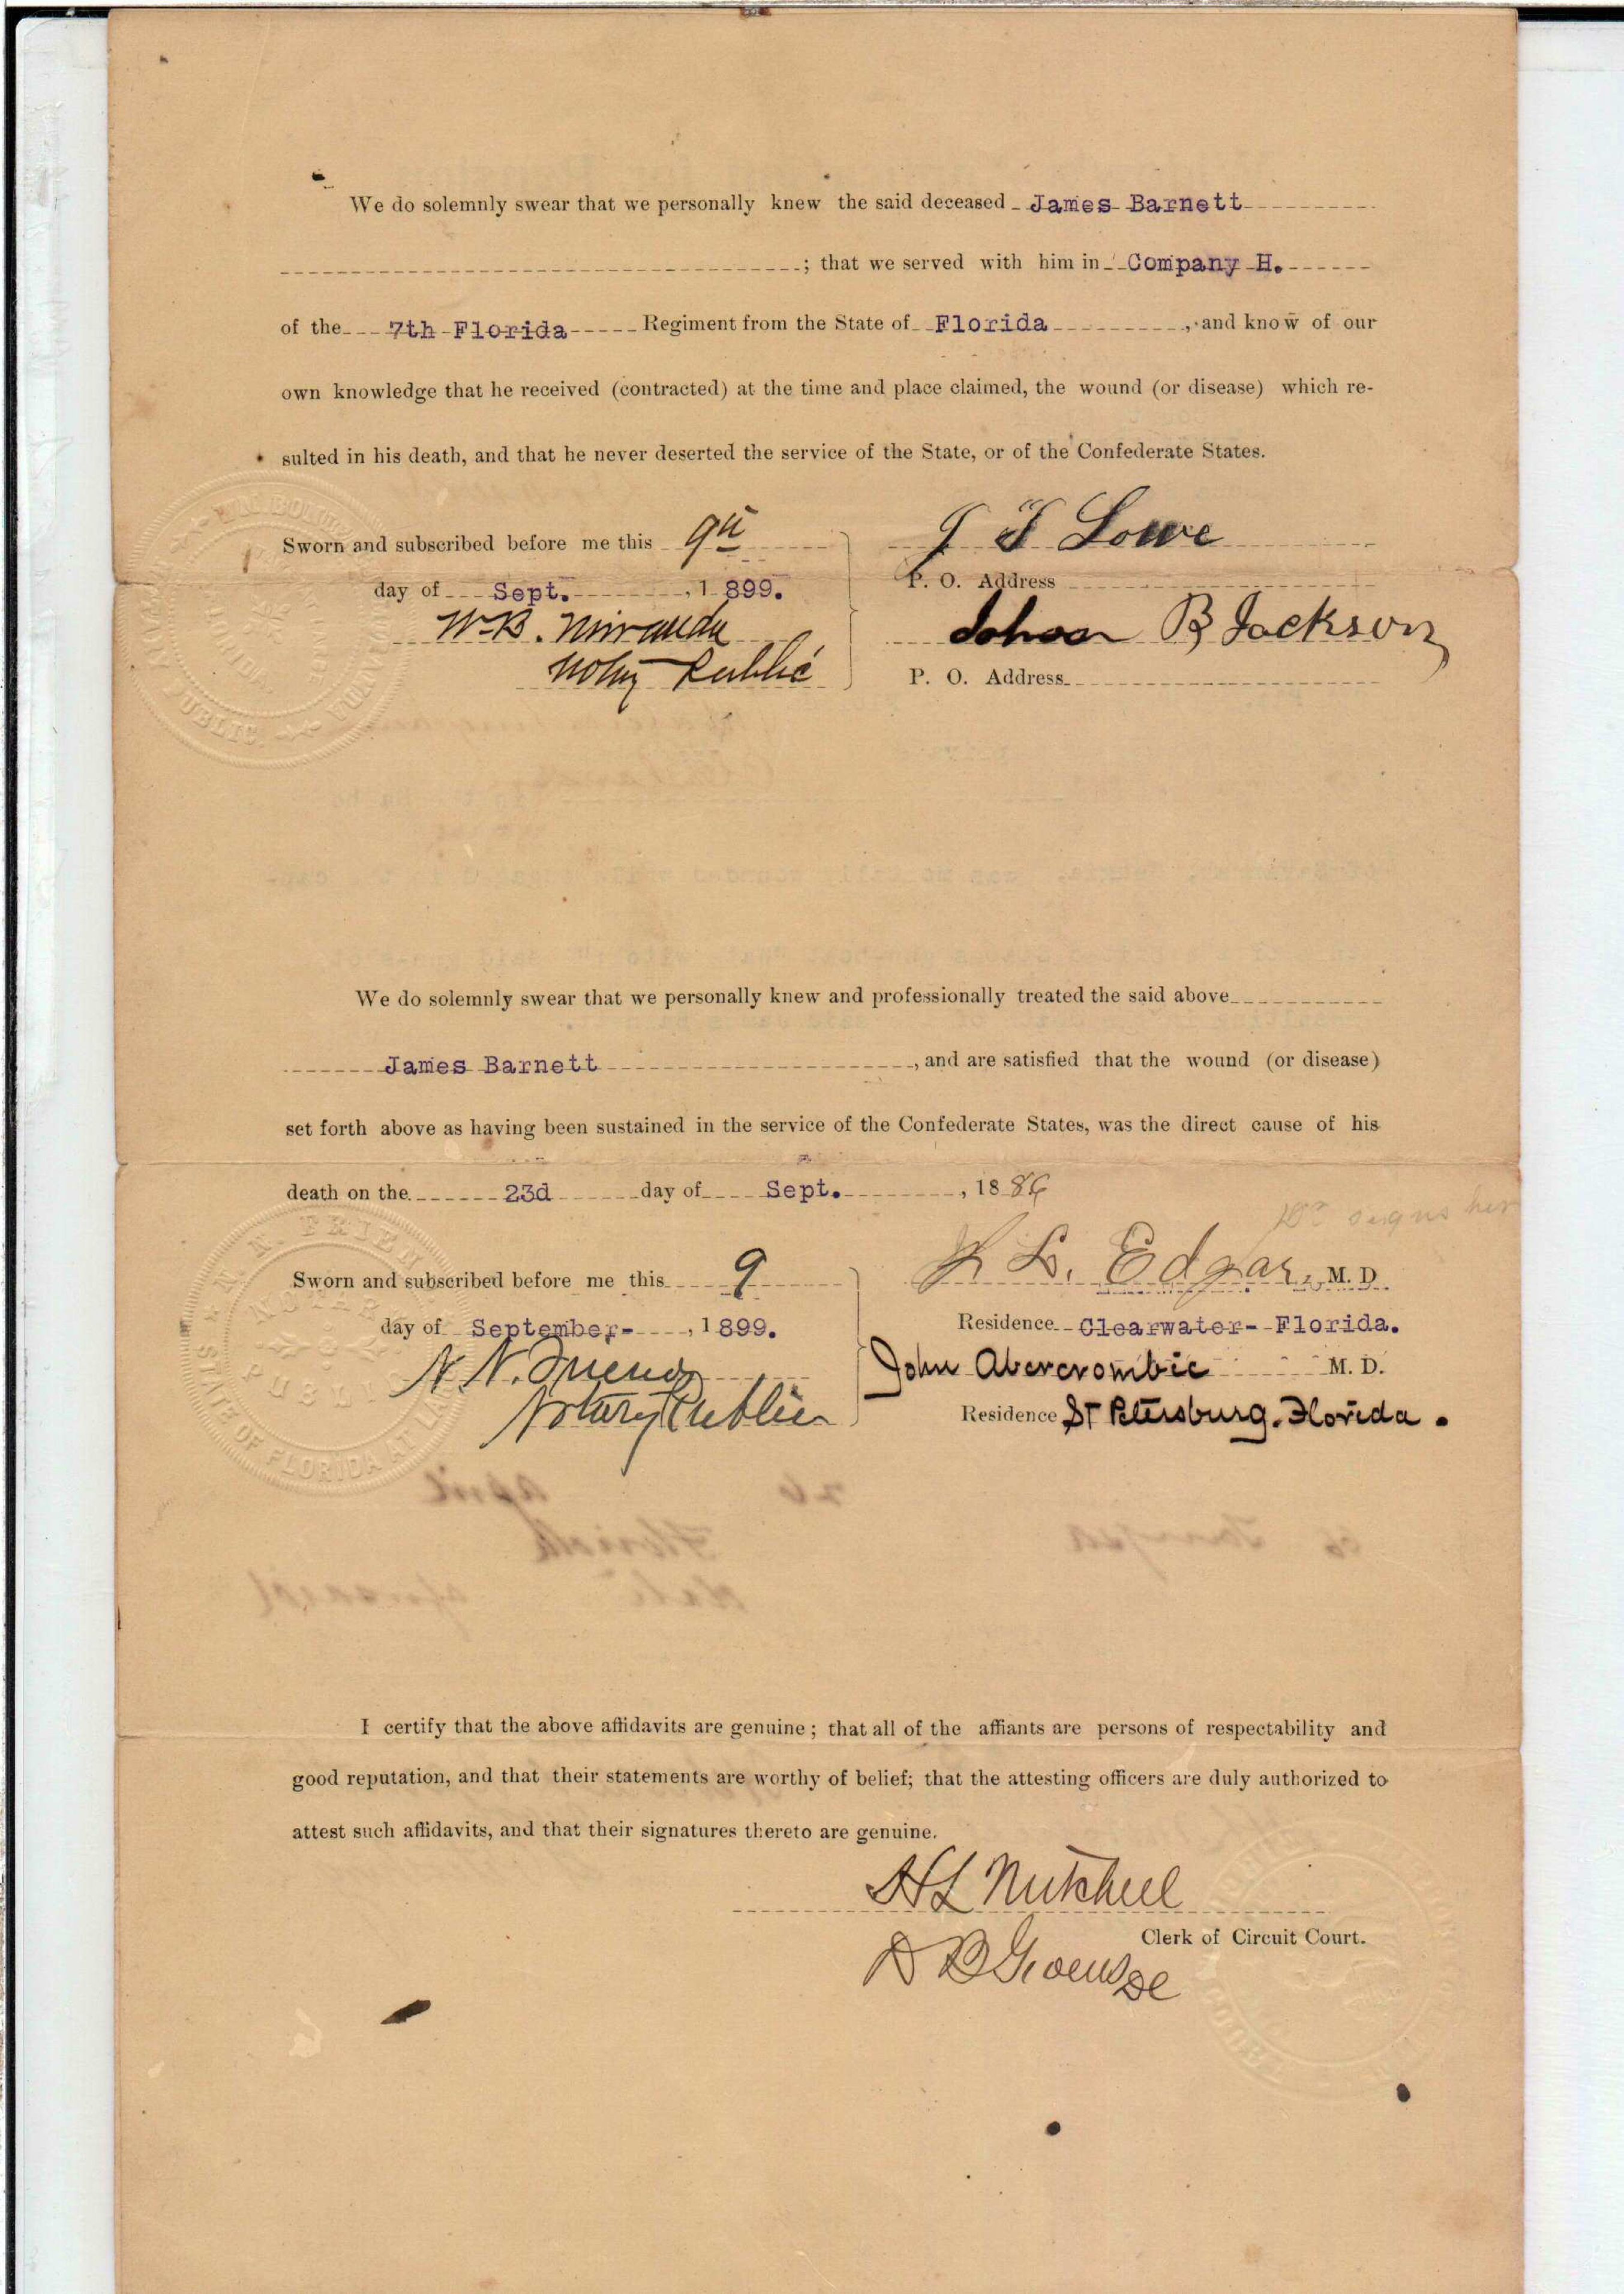 We do solemnly swear that we personally knew the said deceased James Barnett
; that we served with him in Company H.
of the 7th Florida Regiment from the State of Florida, and know of our
own knowledge that he received (contracted) at the time and place claimed, the wound (or disease) which re-
sulted in his death, and that he never deserted the service of the State, or of the Confederate States.
Sworn and subscribed before me this 9th
J F Lowe
day of Sept., 1899.
P. O. Address
W.B. Miranda
B Jackson
Notary Public
P. O. Address
We do solemnly swear that we personally knew and professionally treated the said above
James Barnett, and are satisfied that the wound (or disease)
set forth above as having been sustained in the service of the Confederate States, was the direct cause of his
death on the 23d day of Sept., 1886
Sworn and subscribed before me this 9
L. Edgar, M. D.
day of September-, 1899.
Residence Clearwater- Florida.
N. N.
John Abercrombie M. D.
Notary Public
Residence St Petersburg. Florida.
STATE OF FLORIDA AT LA
I certify that the above affidavits are genuine; that all of the affiants are persons of respectability and
good reputation, and that their statements are worthy of belief; that the attesting officers are duly authorized to
attest such affidavits, and that their signatures thereto are genuine.
H L Mitchell
Clerk of Circuit Court.